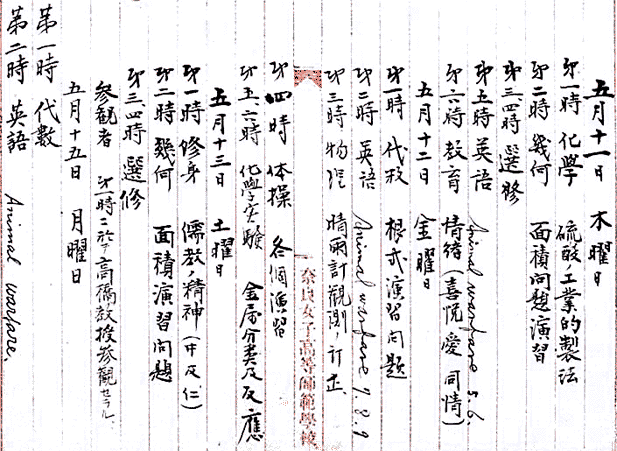 五月十一日 木曜日
第一時 化學 硫酸ノ工業的製法
第二時 幾何 面積問題演習
第三、四時 選修
第五時 英語 Animal warfare 5. 6.
第六時 教育 情緒(喜悦、愛、同情)
五月十二日 金曜日
第一時 代数 根式演習問題
第二時 英語 Animal warfare 7. 8. 9
第三時 物理 晴雨計観測ノ訂正、
奈良女子高等師範學校
第四時 体操 各個演習
第五、六時 化學実験 金属分类及反應
五月十三日 土曜日
第一時 修身 儒教ノ精神( 及仁)
第二時 幾何 面積演習問題
第三、四時 選修
参観者 第一時ニ於テ高橋教授参観セラル、
五月十五日 月曜日
第一時 代數
第二時 英語 Animal warfare,